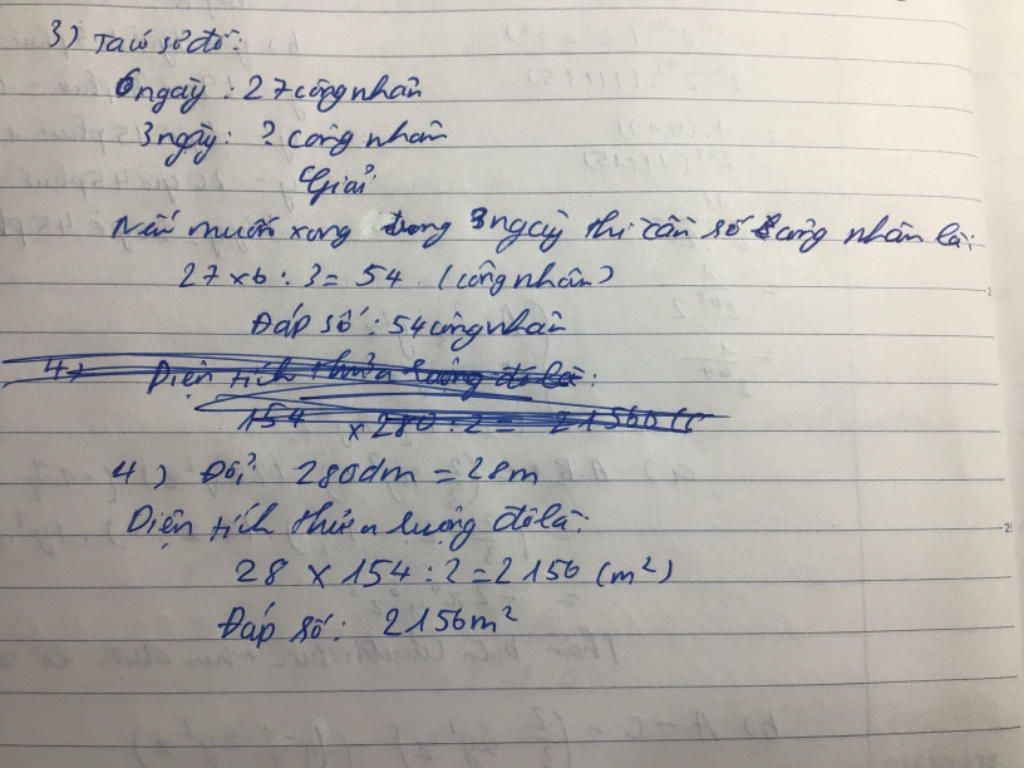 3) Ta có sơ đồ:
6 ngày : 27 công nhân
3 ngày: ? công nhân
Giải
Nếu muốn xong trong 3 ngày thì cần số công nhân là:
27 x 6 : 3 = 54 (công nhân)
Đáp số : 54 công nhân
4) Diện tích thửa ruộng đó là:
154 x 280 : 2 = 21560 (
4) Đổi 280dm = 28m
Diện tích thửa ruộng đó là:
28 x 154 : 2 = 2156 (m²)
Đáp số: 2156m²